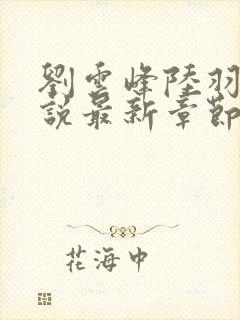 劉雲峰陸羽
說最新章節
花海中